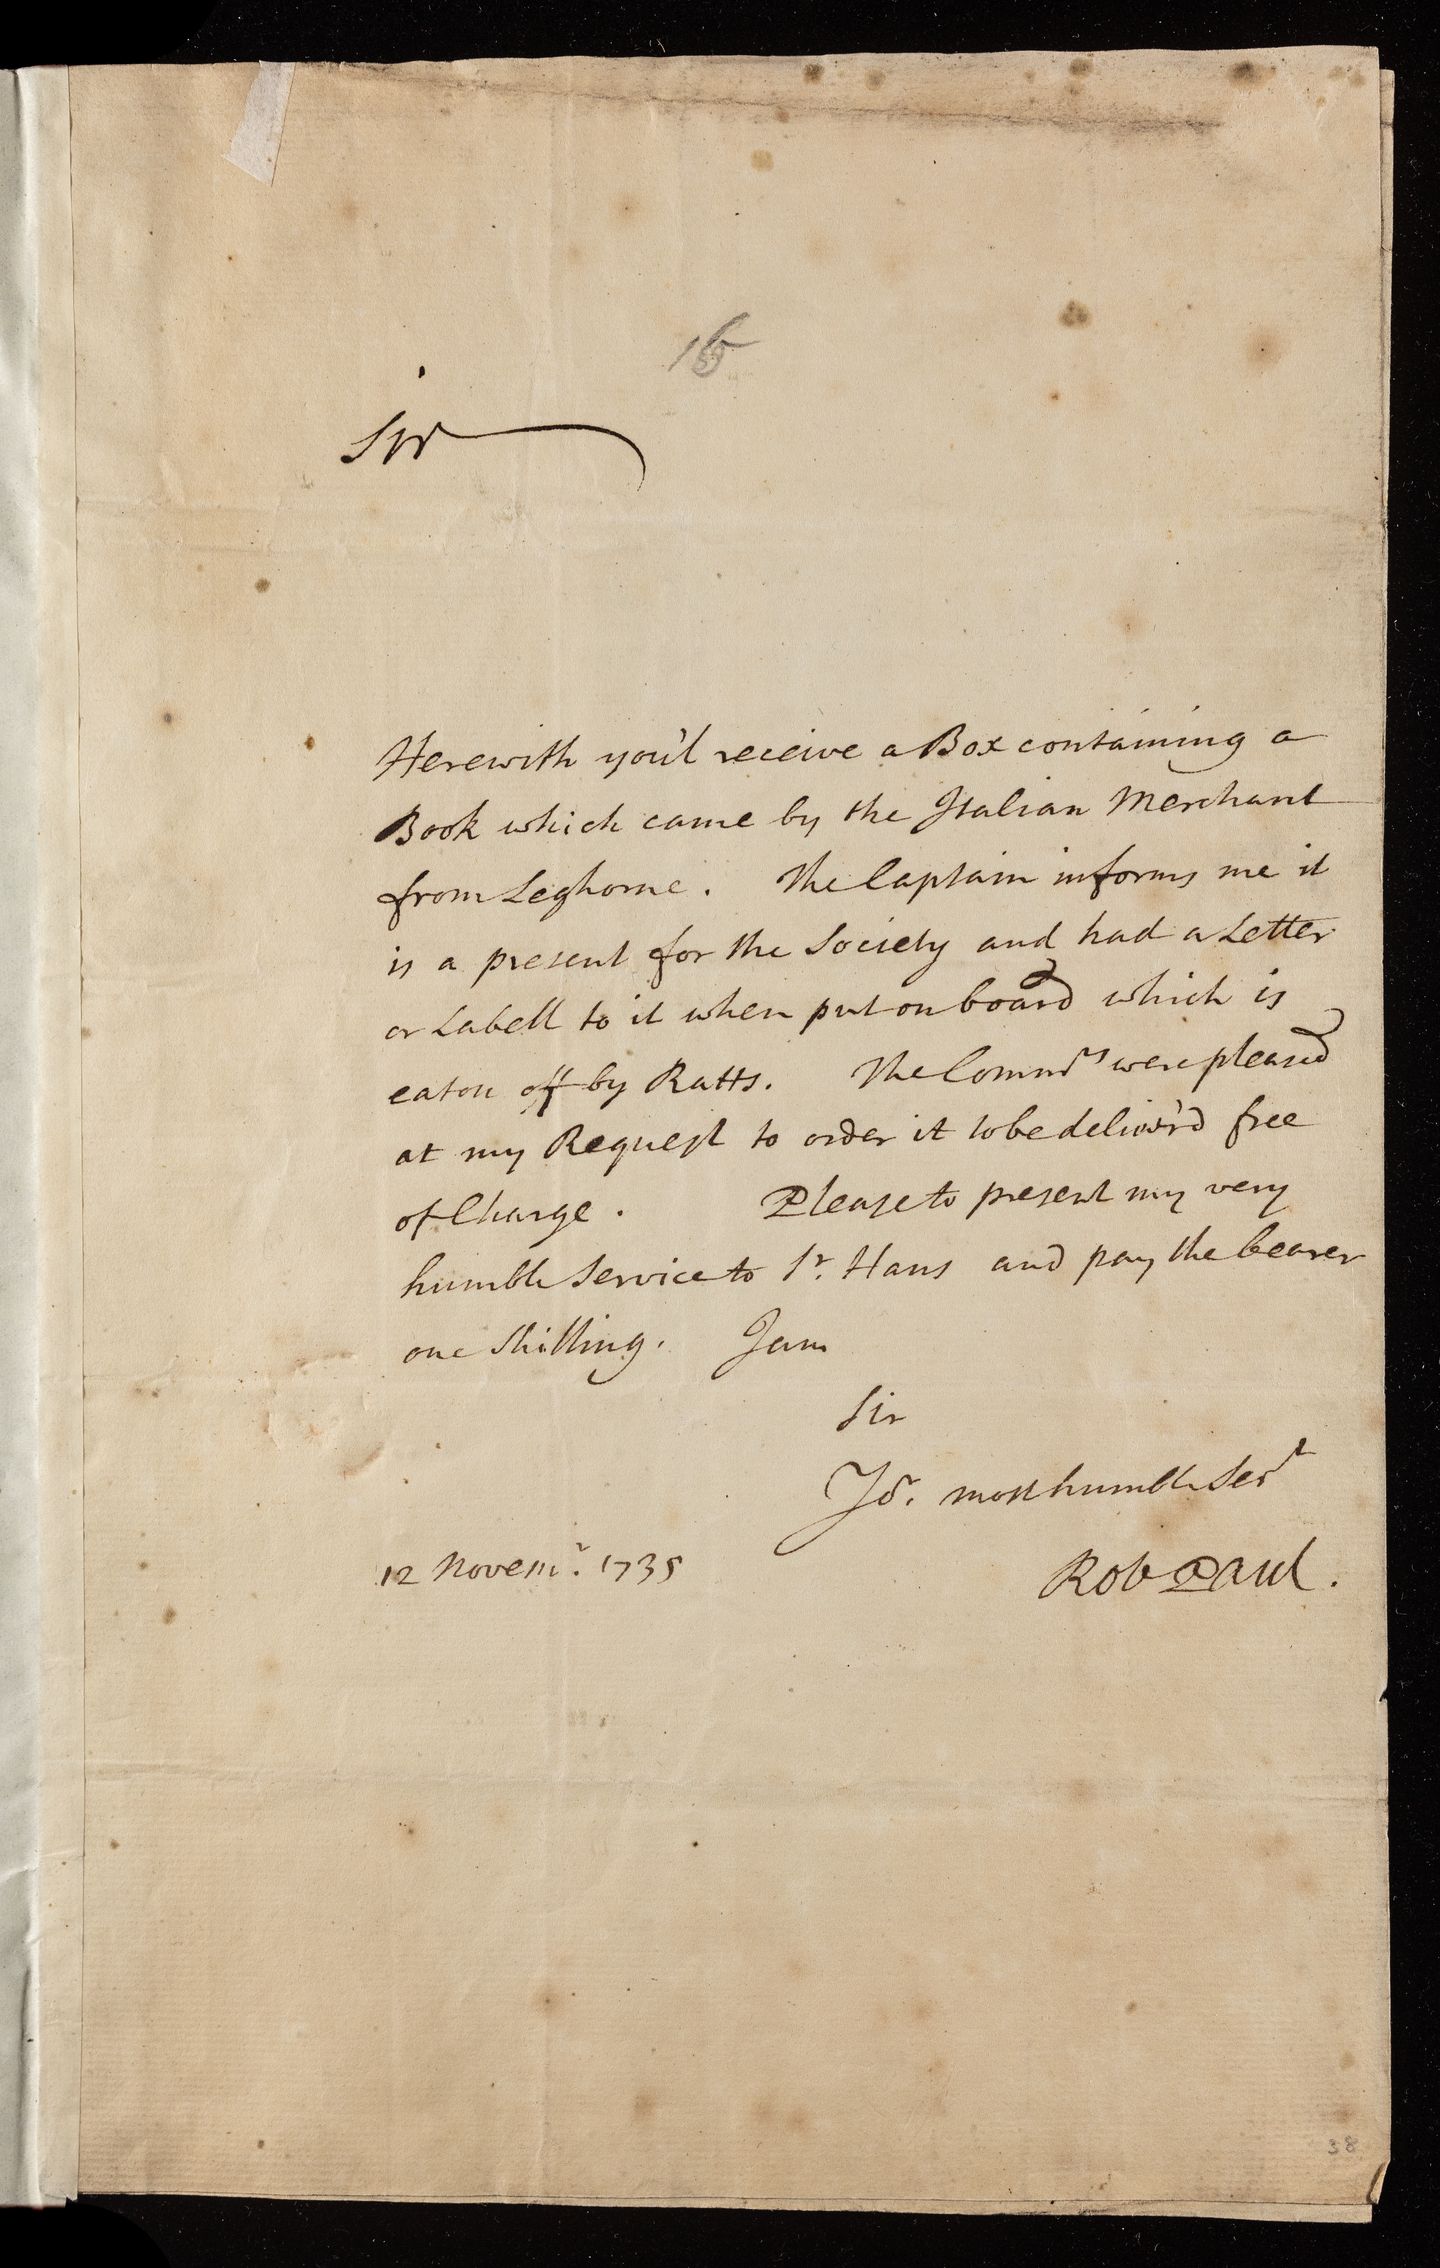 Sir
Herewith you'l receive a Box containing a
Book which came by the Italian Merchant
from Leghorne. The Captain informs me it
is a present for the Society and had a Letter
or Labell to it when put on board which is
eaton off by Ratts. The Commrs were pleased
at my Request to order it to be deliver'd free
of Charge. Please to present my very
humble Service to Sr. Hans and pay the bearer
one Shilling. I am
Sir
Yor. most humble Servt
12 Novemr. 1735 Rob Paul.
38